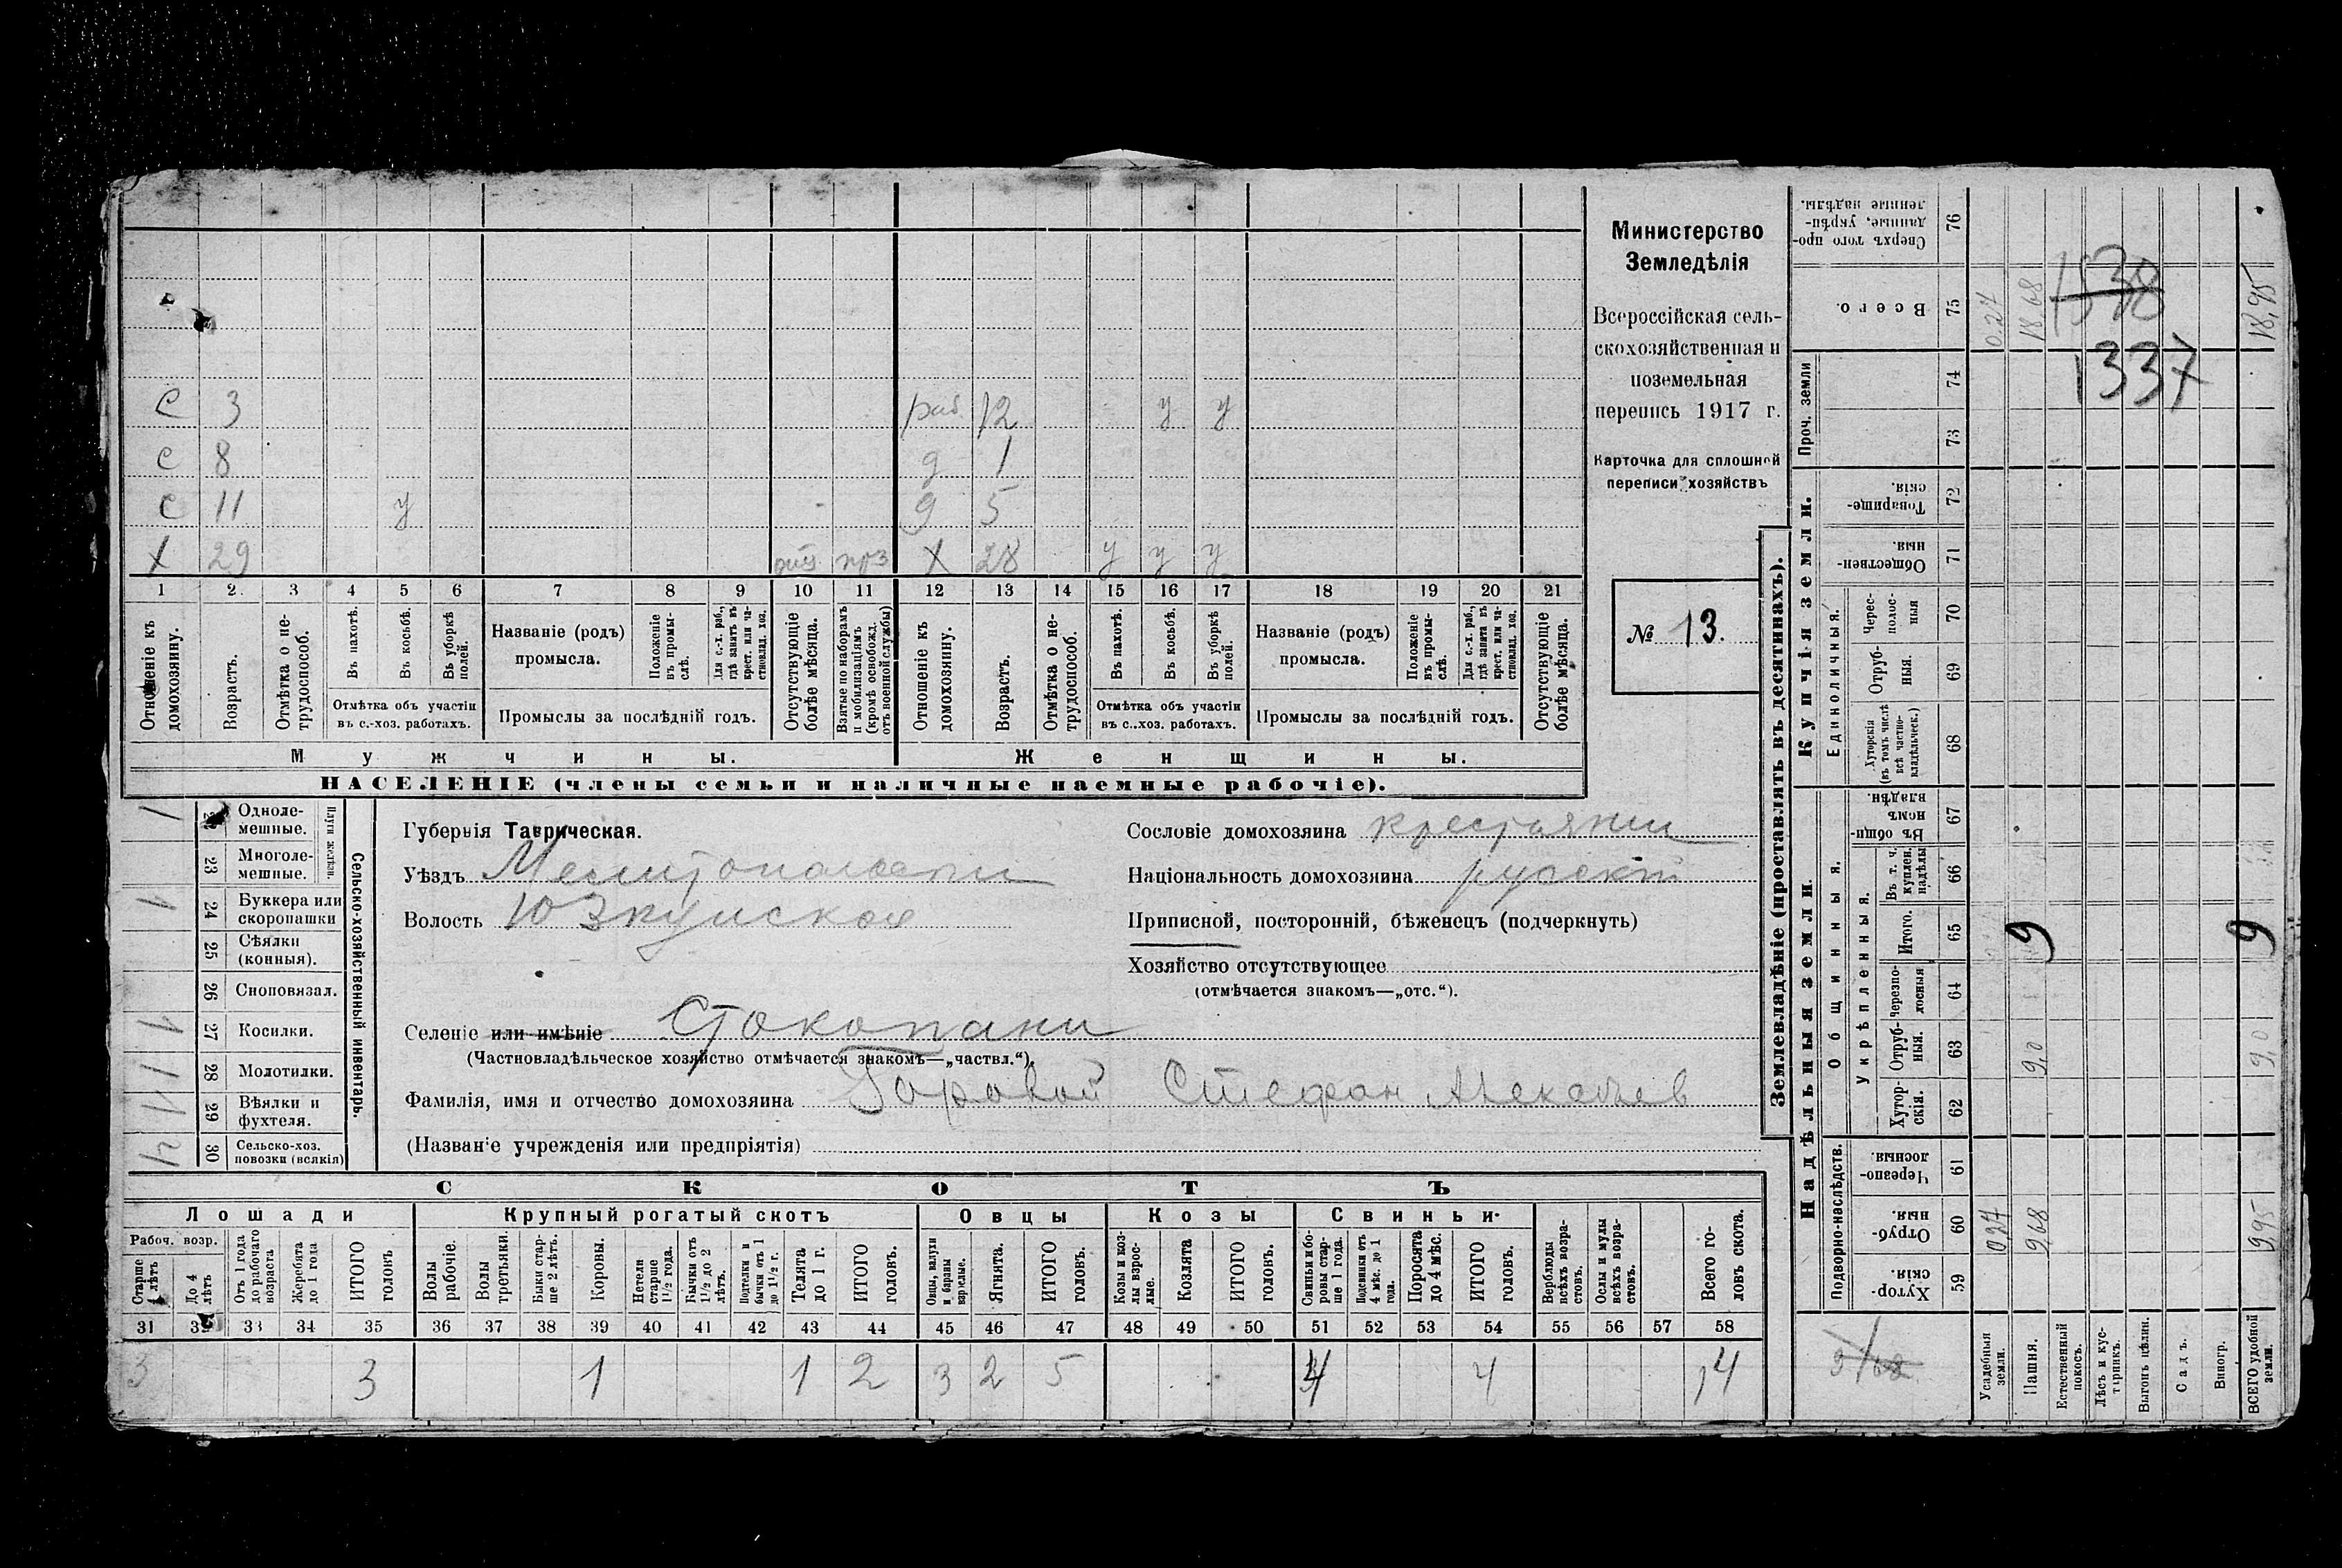 Министерство
Земледѣлія
Всероссійская сель-
скохозяйственная и
поземельная
перепись 1917 г.
Карточка для сплошной
переписи хозяйствъ
№ 13.
с 3 раб. 12 у у
с 8 д 1
с 11 у д 5
х 29 х 28 у у у
1 2. 3 4 5 6 7 8 9 10 11 12 13 14 15 16 17 18 19 20 21
Отношеніе къ домохозяину.
Возрастъ.
Отмѣтка о не-трудоспособ.
Въ пахотѣ.
Въ косьбѣ.
Въ уборкѣ полей.
Отмѣтка объ участіи
въ с.-хоз. работахъ.
Названіе (родъ)
промысла.
Положеніе въ промы-слѣ.
Для с.-х. раб., гдѣ занятъ въ крест. или ча-стновлад. хоз.
Промыслы за послѣдній годъ.
Отсутствующіе болѣе мѣсяца.
Взятые по наборамъ и мобилизаціямъ (кромѣ освобожд. отъ военной службы)
Отношеніе къ домохозяину.
Возрастъ.
Отмѣтка о не-трудоспособ.
Въ пахотѣ.
Въ косьбѣ.
Въ уборкѣ полей.
Отмѣтка объ участіи
въ с.-хоз. работахъ.
Названіе (родъ)
промысла.
Положеніе въ промы-слѣ.
Для с.-х. раб., гдѣ занята въ крест. или ча-стновлад. хоз.
Промыслы за послѣдній годъ.
Отсутствующіе болѣе мѣсяца.
Мужчины.
Женщины.
НАСЕЛЕНІЕ (члены семьи и наличные наемные рабочіе).
Сельско-хозяйственный инвентарь.
Плуги желѣзн.
Одноле-мешные. 1
23 Многоле-мешные.
24 Буккера или скоропашки 1
25 Сѣялки (конныя).
26 Сноповязал.
27 Косилки. 1
28 Молотилки. 1
29 Вѣялки и фухтеля. 1
30 Сельско-хоз. повозки (всякія)
Губернія Таврическая.
Уѣздъ Мелитопольскій
Волость Юзкуйская
Селеніе или имѣніе Стокопани
(Частновладѣльческое хозяйство отмѣчается знакомъ—„частвл.“).
Фамилія, имя и отчество домохозяина Горовой Стефан
(Названіе учрежденія или предпріятія)
Сословіе домохозяина крестьянин
Національность домохозяина русскій
Приписной, посторонній, бѣженецъ (подчеркнуть)
Хозяйство отсутствующее
(отмѣчается знакомъ—„отс.“).
СКОТЪ
Лошади
Рабоч. возр.
Старше 4 лѣтъ
До 4 лѣтъ
Отъ 1 года до рабочаго возраста
Жеребята до 1 года
ИТОГО головъ
Крупный рогатый скотъ
Волы рабочіе.
Волы третьяки.
Быки стар-ше 2 лѣтъ.
Коровы.
Нетели старше 1½ года.
Бычки отъ 1½ до 2 лѣтъ.
Подтелки и бычки отъ 1 до 1½ г.
Телята до 1 г.
ИТОГО головъ.
Овцы
Овцы, валухи и бараны взрослые.
Ягнята.
ИТОГО головъ.
Козы
Козы и коз-лы взрос-лые.
Козлята
ИТОГО головъ.
Свиньи.
Свиньи и бо-ровы стар-ше 1 года.
Подсвинки отъ 4 мѣс. до 1 года.
Поросята до 4 мѣс.
ИТОГО головъ.
Верблюды всѣхъ возра-стовъ.
Ослы и мулы всѣхъ возра-стовъ.
Всего го-ловъ скота.
31 32 33 34 35 36 37 38 39 40 41 42 43 44 45 46 47 48 49 50 51 52 53 54 55 56 57 58
3 3 1 1 2 3 2 5 4 4 14
Землевладѣніе (проставлять въ десятинахъ).
Надѣльныя земли.
Подворно-наслѣдств.
Хутор-скія. 59
Отруб-ныя. 60
Черезпо-лосныя. 61
Общинныя.
Укрѣпленныя.
Хутор-скія. 62
Отруб-ныя. 63
Черезпо-лосныя 64
Итого. 65
Въ т. ч. куплен. надѣлы 66
Въ общи-номъ владѣн. 67
Купчія земли.
Единоличныя.
Хуторскія (въ томъ числѣ всѣ частно-владѣльческ.) 68
Отруб-ныя. 69
Черес-полос-ныя 70
Обществен-ныя. 71
Товарище-скія. 72
Проч. земли
73
74
Всего. 75
Сверхъ того про-данные, укрѣп-ленные надѣлы. 76
Усадебныя земли. 0.27 0.27
Пашня. 9,68 9,0 9 18.68
Естественный покосъ.
Лѣсъ и кус-тарникъ.
Выгонъ цѣлин.
Садъ.
Виногр.
ВСЕГО удобной земли. 9,95 9,0 9 18,95
1338
1337